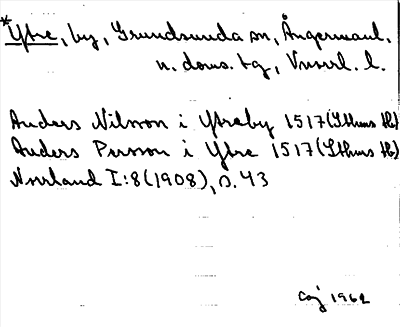 *Ytre, by, Grundsunda sn, Ångermanl.
n. doms. tg, Vnorrl. l.
Anders Nilsson i Ytreby 1517 (Sthms tb)
Anders Persson i Ytre 1517 (Sthms tb)
Norrland I:8 (1908), s. 43
1962